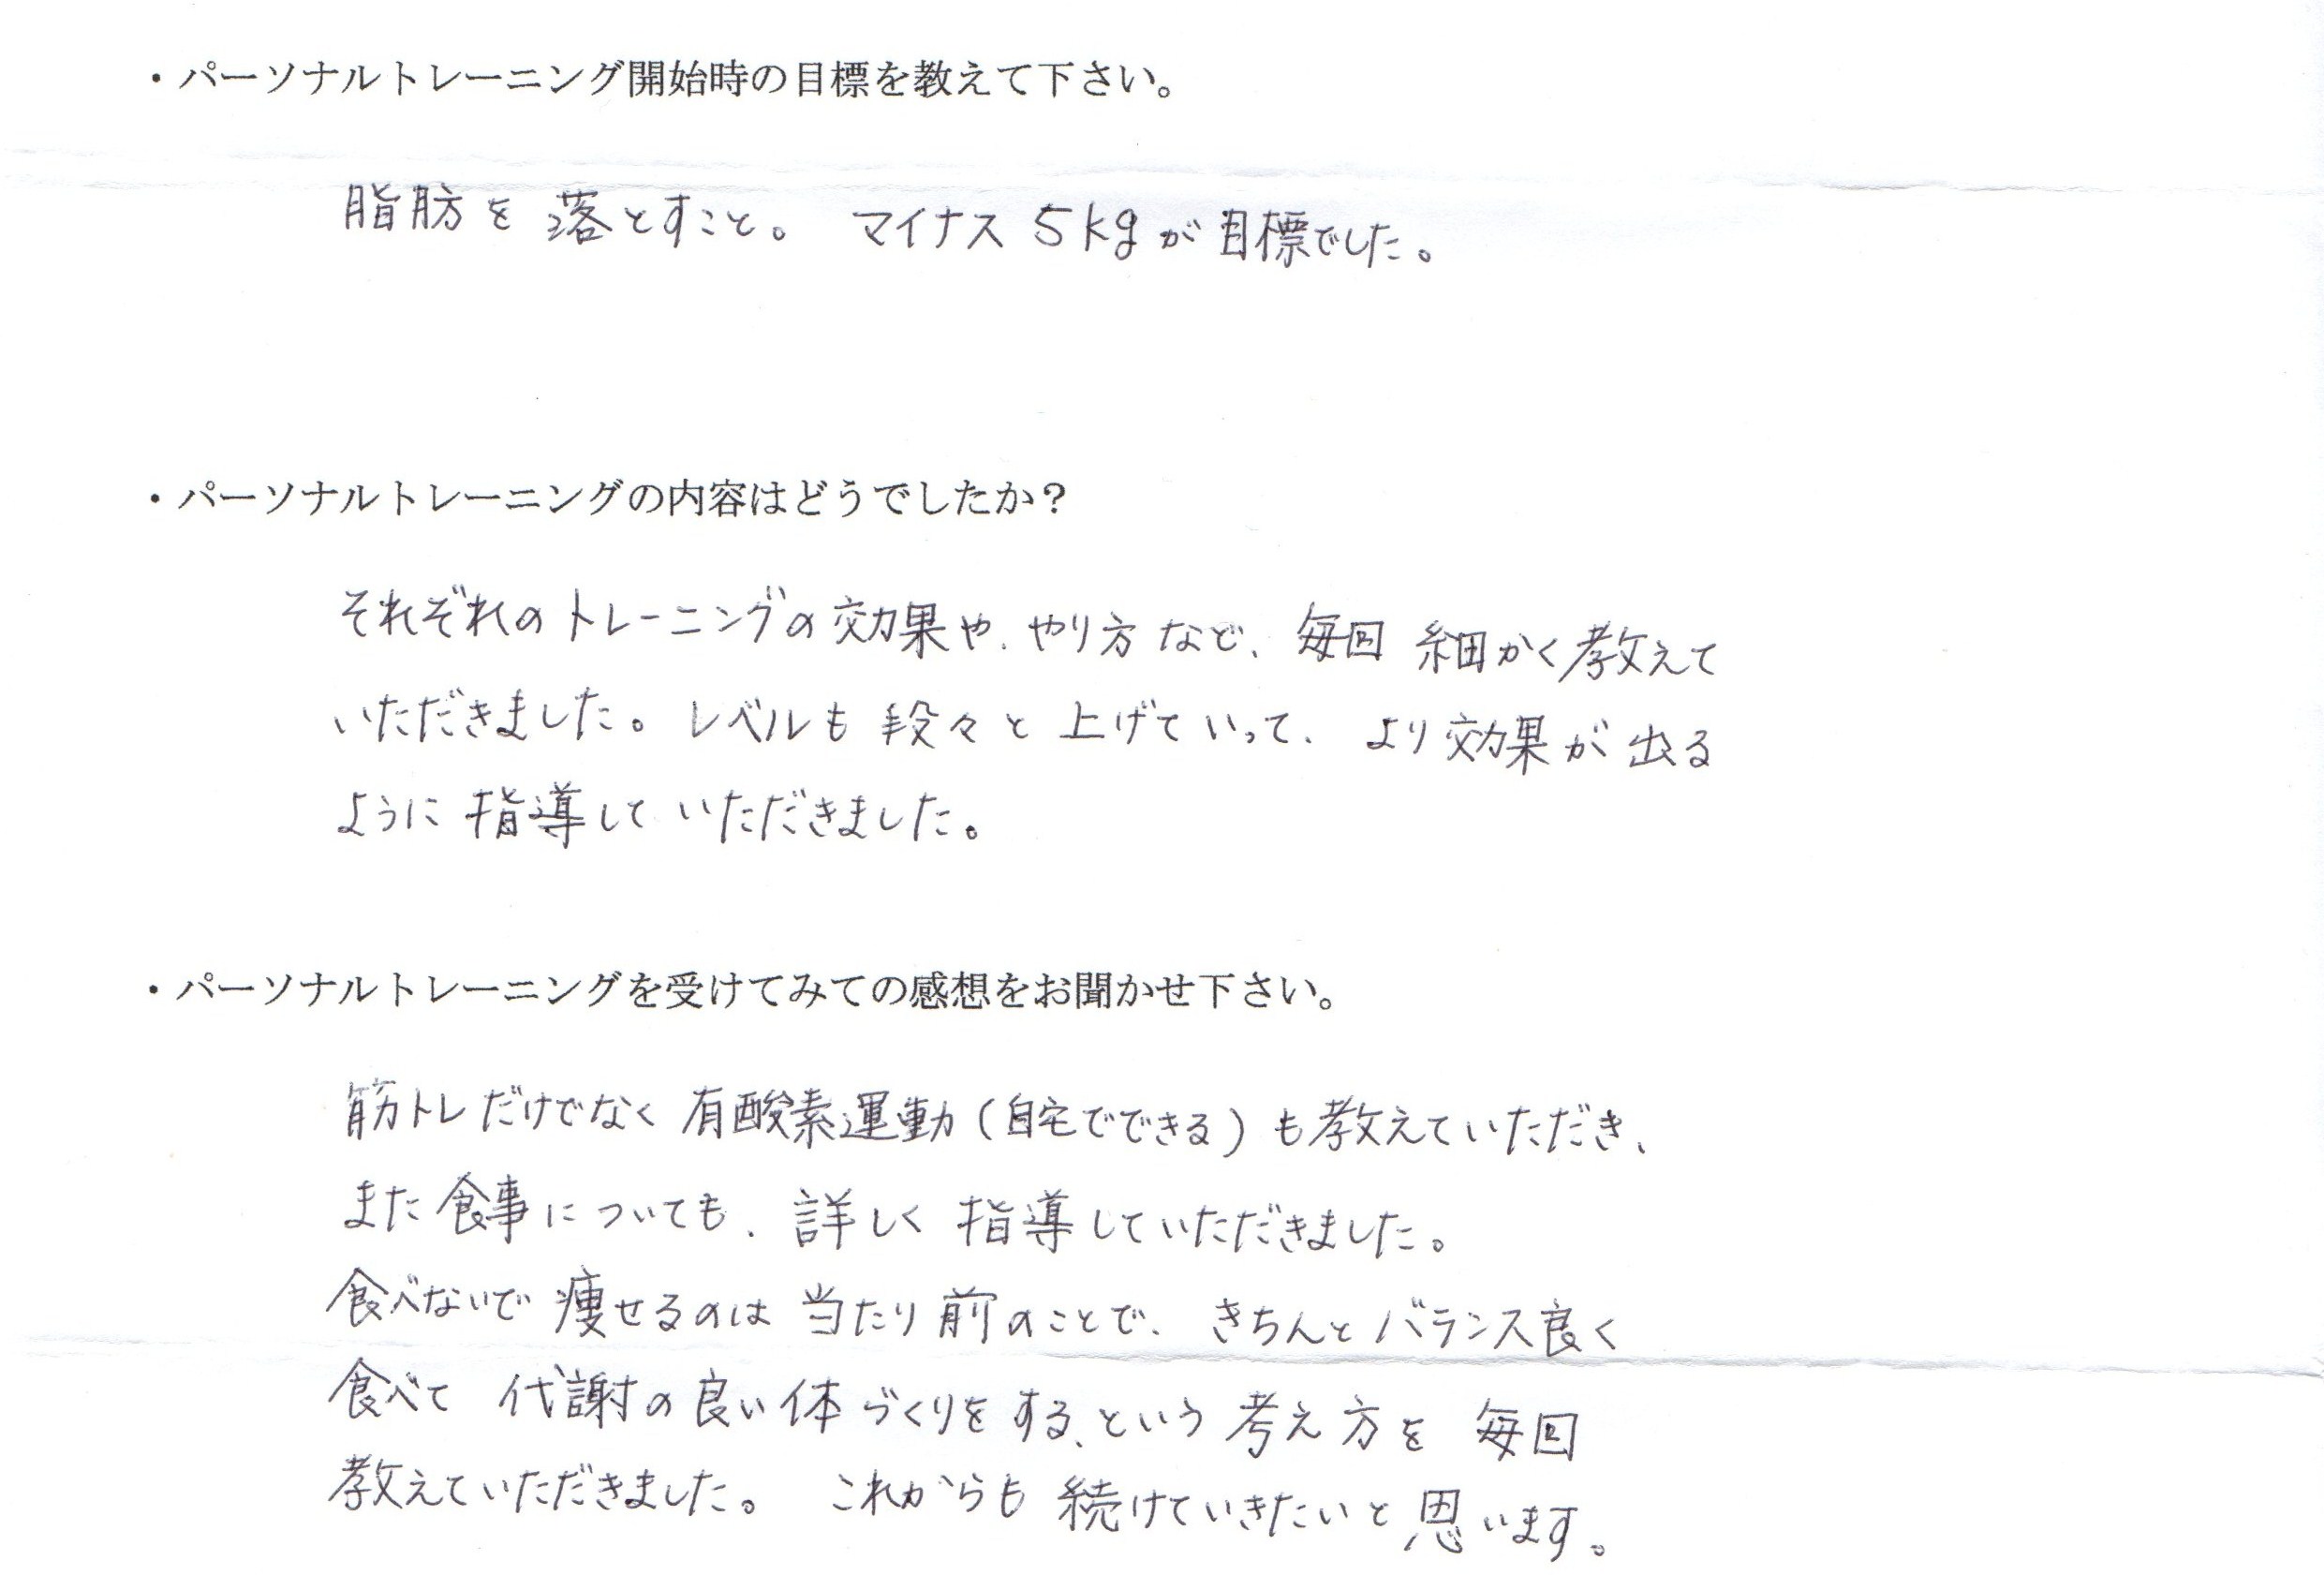 ・パーソナルトレーニング開始時の目標を教えて下さい。
脂肪を落とすこと。 マイナス5kgが目標でした。
・パーソナルトレーニングの内容はどうでしたか？
それぞれのトレーニングの効果や、やり方など、毎回細かく教えて
いただきました。レベルも段々と上げていって、より効果が出る
ように指導していただきました。
・パーソナルトレーニングを受けてみての感想をお聞かせ下さい。
筋トレだけでなく有酸素運動(自宅でできる)も教えていただき、
また食事についても、詳しく指導していただきました。
食べないで痩せるのは当たり前のことで、きちんとバランス良く
食べて代謝の良い体づくりをする、という考え方を毎回
教えていただきました。 これからも続けていきたいと思います。